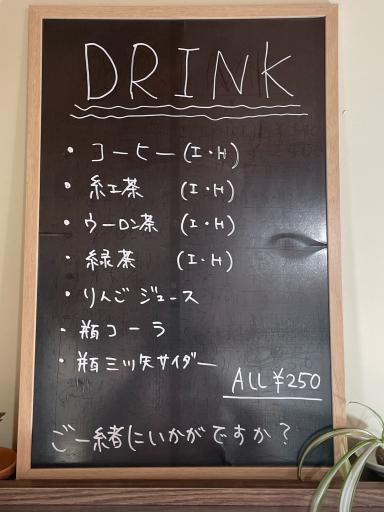 DRINK
・コーヒー(I・H)
・紅茶 (I・H)
・ウーロン茶 (I・H)
・緑茶 (I・H)
・りんごジュース
・瓶コーラ
・瓶三ツ矢サイダー
ALL ¥250
ご一緒にいかがですか?